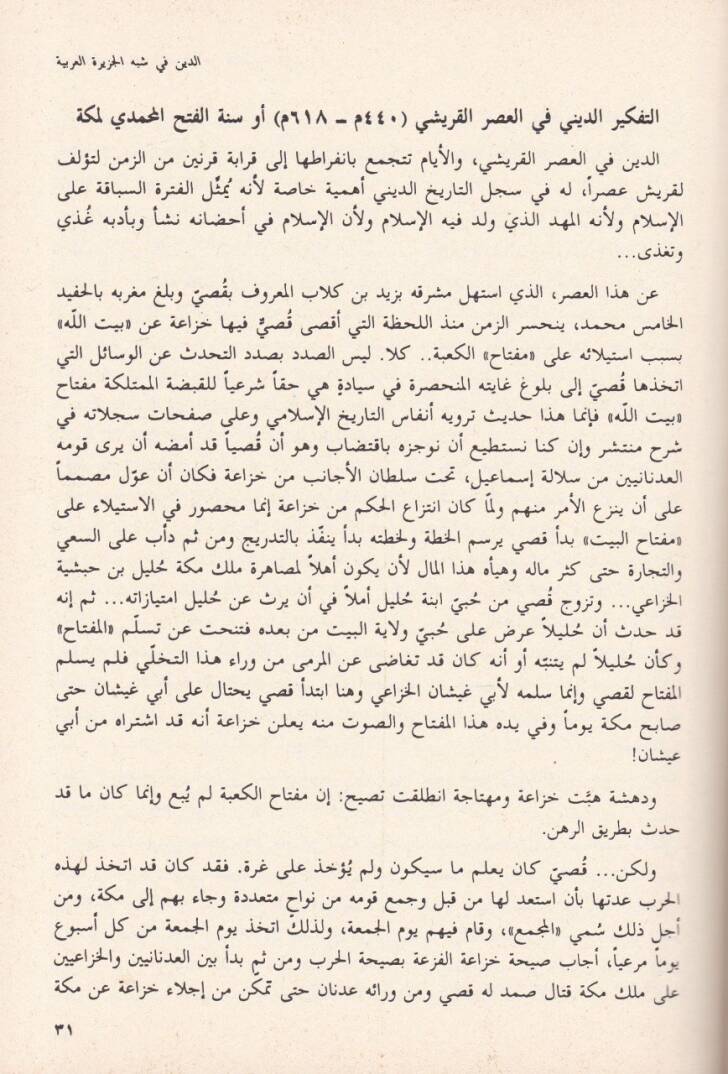 الدين في شبه الجزيرة العربية
التفكير الديني في العصر القريشي (٤٤٠م ـ ٦١٨م) أو سنة الفتح المحمدي لمكة
الدين في العصر القريشي، والأيام تتجمع بانفراطها إلى قرابة قرنين من الزمن لتؤلف
لقريش عصراً، له في سجل التاريخ الديني أهمية خاصة لأنه يُمثِّل الفترة السباقة على
الإسلام ولأنه المهد الذي ولد فيه الإسلام ولأن الإسلام في أحضانه نشأ وبأدبه غُذي
وتغذى...
عن هذا العصر، الذي استهل مشرقه بزيد بن كلاب المعروف بقُصيّ وبلغ مغربه بالحفيد
الخامس محمد، ينحسر الزمن منذ اللحظة التي أقصى قُصيٌّ فيها خزاعة عن «بيت اللّه»
بسبب استيلائه على «مفتاح» الكعبة.. كلا. ليس الصدد بصدد التحدث عن الوسائل التي
اتخذها قُصيّ إلى بلوغ غايته المنحصرة في سيادةٍ هي حقاً شرعياً للقبضة الممتلكة مفتاح
«بيت اللّه» فإنما هذا حديث ترويه أنفاس التاريخ الإسلامي وعلى صفحات سجلاته في
شرح منتشر وإن كنا نستطيع أن نوجزه باقتضاب وهو أن قُصياً قد أمضه أن يرى قومه
العدنانيين من سلالة إسماعيل، تحت سلطان الأجانب من خزاعة فكان أن عوّل مصمماً
على أن ينزع الأمر منهم ولمّا كان انتزاع الحكم من خزاعة إنما محصور في الاستيلاء على
«مفتاح البيت» بدأ قصي يرسم الخطة ولخطته بدأ ينفّذ بالتدريج ومن ثم دأب على السعي
والتجارة حتى كثر ماله وهيأه هذا المال لأن يكون أهلاً لمصاهرة ملك مكة حُليل بن حبشية
الخزاعي... وتزوج قُصي من حُبيّ ابنة حُليل أملاً في أن يرث عن حُليل امتيازاته... ثم إنه
قد حدث أن حُليلاً عرض على حُبيّ ولاية البيت من بعده فتنحت عن تسلّم «المفتاح»
وكأن حُليلاً لم يتنبّه أو أنه كان قد تغاضى عن المرمى من وراء هذا التخلّي فلم يسلم
المفتاح لقصي وإنما سلمه لأبي غيشان الخزاعي وهنا ابتدأ قصي يحتال على أبي غيشان حتى
صابح مكة يوماً وفي يده هذا المفتاح والصوت منه يعلن خزاعة أنه قد اشتراه من أبي
عيشان!
ودهشة هبَّت خزاعة ومهتاجة انطلقت تصيح: إن مفتاح الكعبة لم يُبع وإنما كان ما قد
حدث بطريق الرهن.
ولكن... قُصيّ كان يعلم ما سيكون ولم يُؤخذ على غرة. فقد كان قد اتخذ لهذه
الحرب عدتها بأن استعد لها من قبل وجمع قومه من نواحٍ متعددة وجاء بهم إلى مكة، ومن
أجل ذلك سُمي «المجمع»، وقام فيهم يوم الجمعة، ولذلك اتخذ يوم الجمعة من كل أسبوع
يوماً مرعياً، أجاب صيحة خزاعة الفزعة بصيحة الحرب ومن ثم بدأ بين العدنانيين والخزاعيين
على ملك مكة قتال صمد له قصي ومن ورائه عدنان حتى تمكّن من إجلاء خزاعة عن مكة
٣١